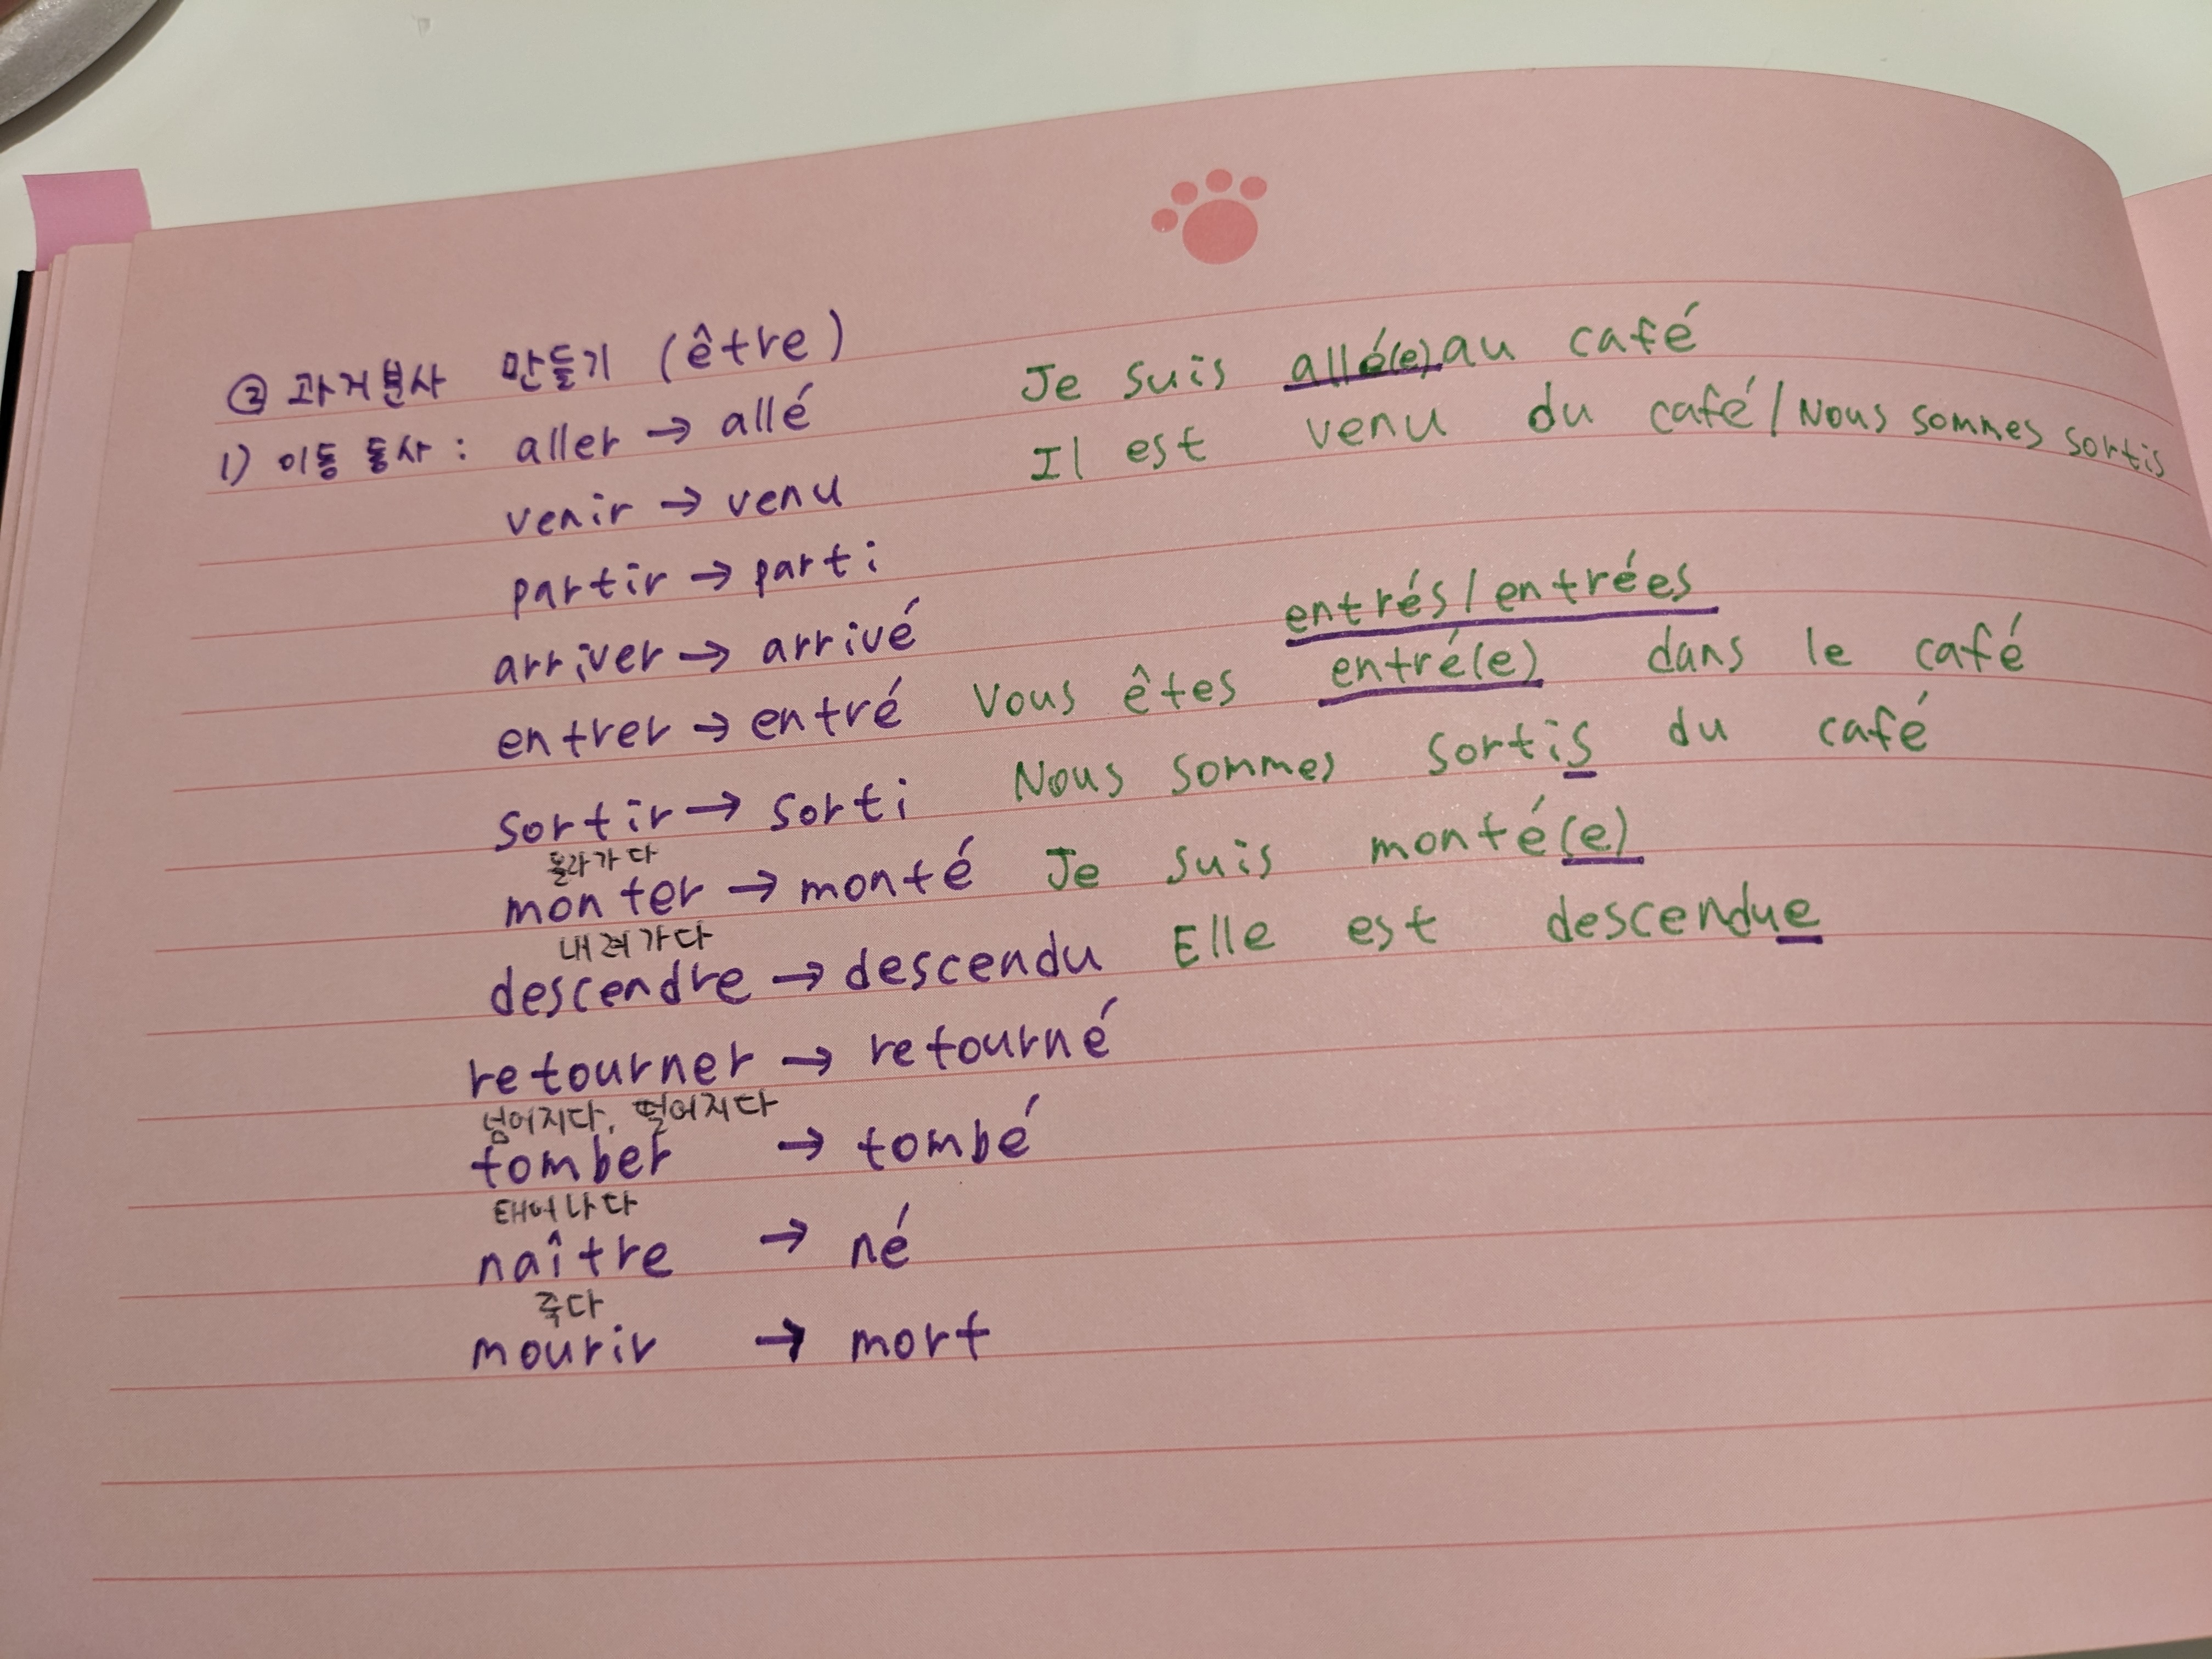 ② 과거분사 만들기 (être)
Je suis allé(e) au café
1) 이동 동사 : aller → allé
Il est venu du café / Nous sommes sortis
venir → venu
partir → parti
arriver → arrivé
entrés / entrées
entrer → entré Vous êtes entré(e) dans le café
sortir → sorti Nous sommes sortis du café
올라가다
monter → monté Je suis monté(e)
내려가다
descendre → descendu Elle est descendue
retourner → retourné
넘어지다, 떨어지다
tomber → tombé
태어나다
naître → né
죽다
mourir → mort